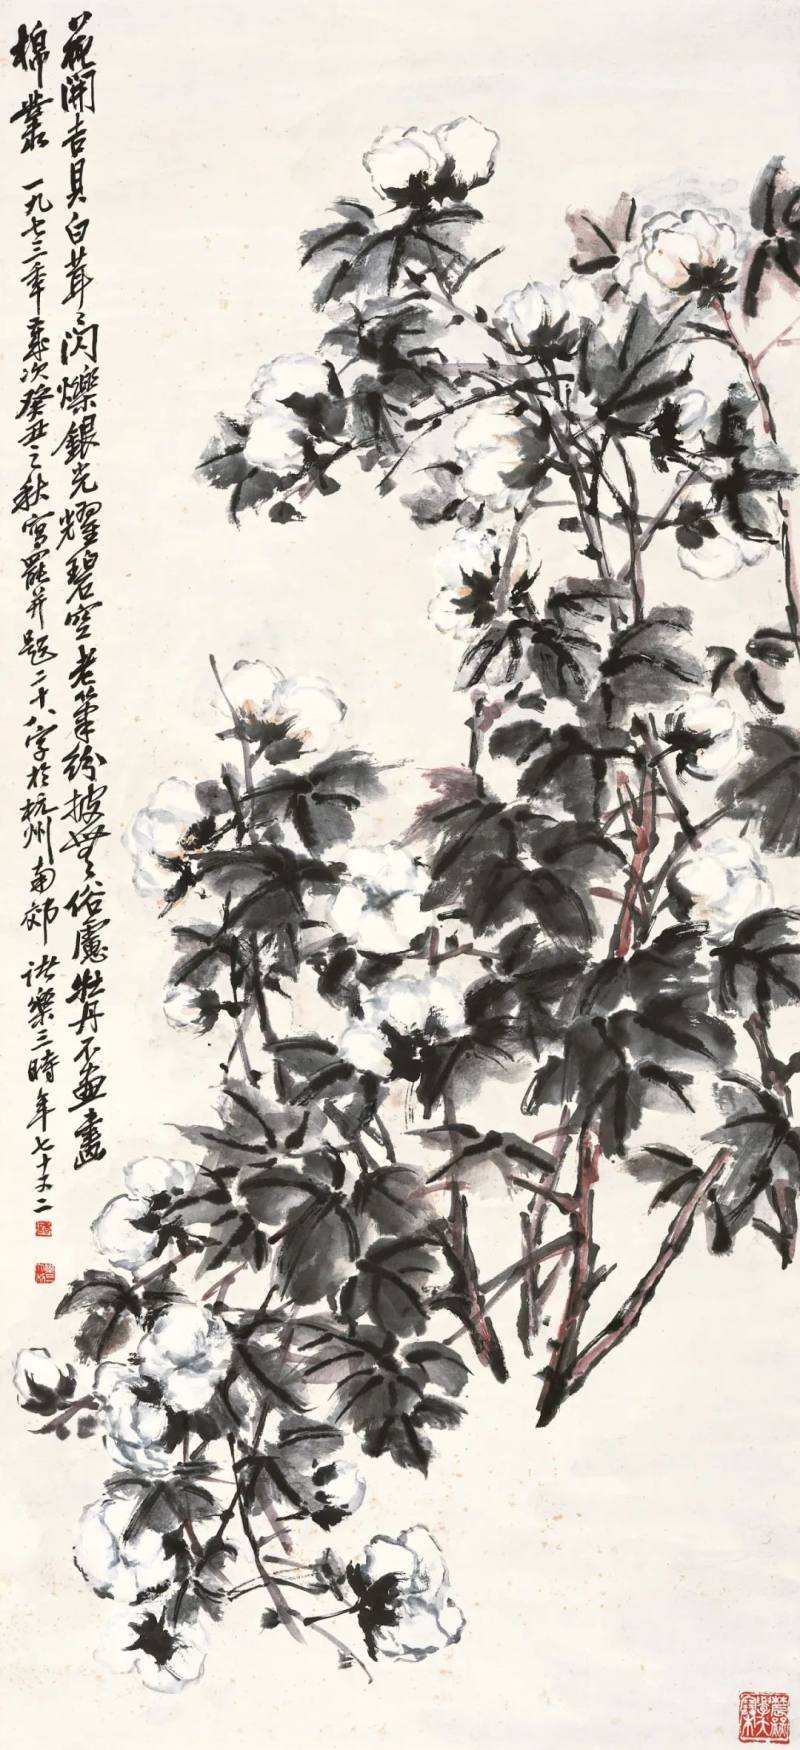 花開吉貝白茸〻閃爍銀光耀碧空老筆紛披無俗慮牡丹不画畫
棉叢 一九七三年歲次癸丑之秋寫罷并題二十八字於杭州南郊 諸樂三時年七十又二